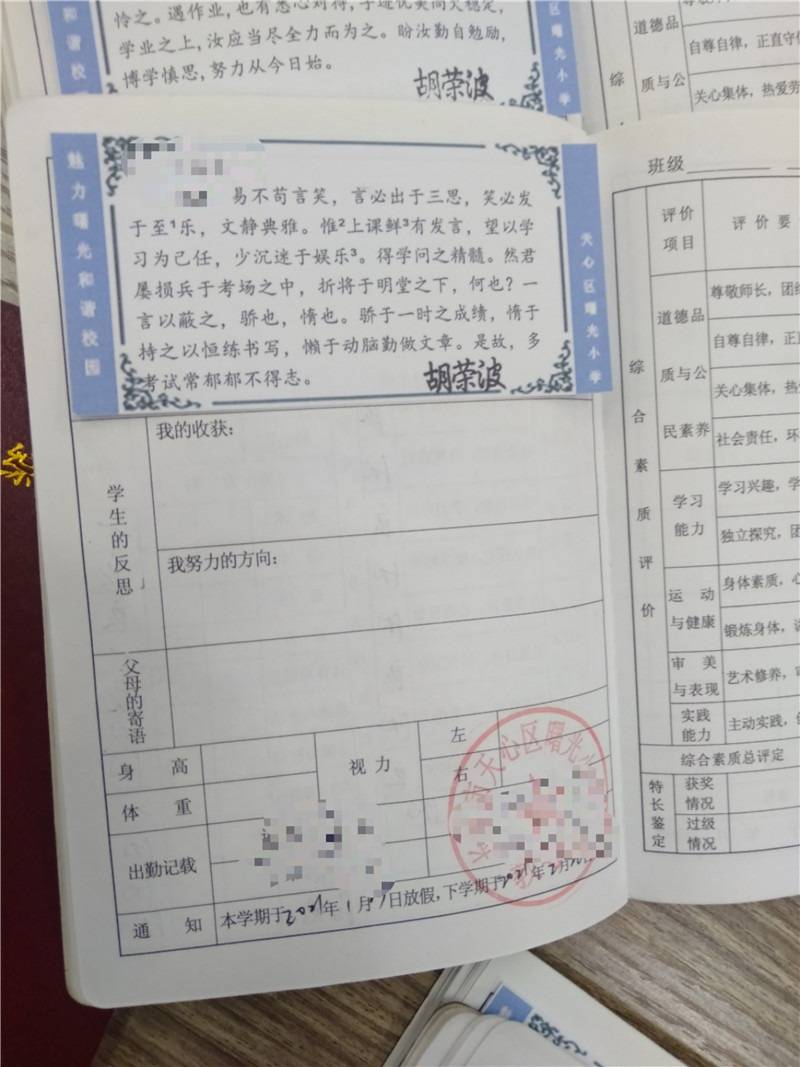 怜之。遇作业,也有悉心对待,字迹优美尚欠稳定,
学业之上,汝应当尽全力而为之。盼汝勤自勉励,
博学慎思,努力从今日始。
胡荣波
和谐校
区曙光小学
道德品
质与公
综
自尊自律,正直守
关心集体,热爱劳
魅力曙光和谐校园
易不苟言笑,言必出于三思,笑必发
于至¹乐,文静典雅。惟²上课鲜³有发言,望以学
习为己任,少沉迷于娱乐³。得学问之精髓。然君
屡损兵于考场之中,折将于明堂之下,何也?一
言以蔽之,骄也,惰也。骄于一时之成绩,惰于
持之以恒练书写,懒于动脑勤做文章。是故,多
考试常郁郁不得志。
胡荣波
天心区曙光小学
学生的反思
我的收获:
我努力的方向:
父母的寄语
身高
体重
视力
左
右
出勤记载
通知
本学期于2021年1月 日放假,下学期于2021年2月
天心区曙光
班级
评价项目
评价要
综合素质评价
道德品质与公民素养
尊敬师长,团结
自尊自律,正直
关心集体,热
社会责任,环
学习能力
学习兴趣,学
独立探究,团
运动与健康
身体素质,心
锻炼身体,
审美与表现
艺术修养,
实践能力
主动实践,
综合素质总评定
特长鉴定
获奖情况
过级情况